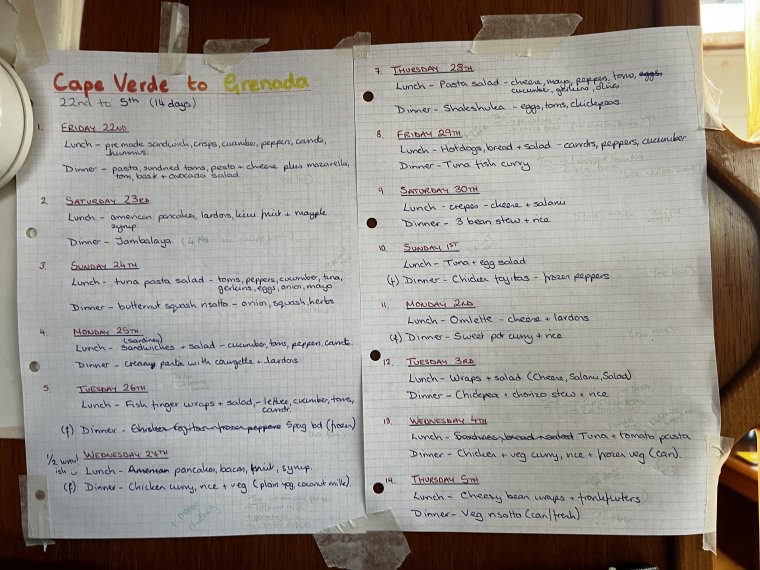 Cape Verde to Grenada
22nd to 5th (14 days)
1. FRIDAY 22ND
Lunch - premade sandwich, crisps, cucumber, peppers, carrots,
hummus.
Dinner - pasta, sundried toms, pesto + cheese plus mozarella,
tom, basil + avocado salad.
2. SATURDAY 23RD
Lunch - american pancakes, lardons, kiwi fruit + mayple
syrup
Dinner - Jambalaya
3. SUNDAY 24TH
Lunch - tuna pasta salad - toms, peppers, cucumber, tuna,
gerkins, eggs, onion, mayo
Dinner - butternut squash risotto - onion, squash, herbs
4. MONDAY 25TH
(sardines)
Lunch - sandwiches + salad - cucumber, toms, peppers, carrots.
Dinner - creamy pasta with courgette + lardons
5. TUESDAY 26TH
Lunch - Fish finger wraps + salad, - lettuce, cucumber, toms,
carrot.
(f) Dinner - Chicken fajitas - frozen peppers Spag bol (frozen)
1/2 way! WEDNESDAY 27TH
ish Lunch - American pancakes, bacon, fruit, syrup.
(f) Dinner - Chicken curry, rice + veg (plain veg, coconut milk).
7. THURSDAY 28TH
Lunch - Pasta salad - cheese, mayo, peppers, toms, eggs,
cucumber, gerkins, olives
Dinner - Shakshuka - eggs, toms, chickpeas
8. FRIDAY 29TH
Lunch - Hotdogs, bread + salad - carrots, peppers, cucumber
Dinner - Tuna fish curry
9. SATURDAY 30TH
Lunch - crepes - cheese + salami
Dinner - 3 bean stew + rice
10. SUNDAY 1ST
Lunch - Tuna + egg salad
(f) Dinner - Chicken fajitas - frozen peppers
11. MONDAY 2ND
Lunch - Omlette - cheese + lardons
(f) Dinner - Sweet pot curry + rice
12. TUESDAY 3RD
Lunch - Wraps + salad (Cheese, Salami, Salad)
Dinner - Chickpea + chorizo stew + rice
13. WEDNESDAY 4TH
Lunch - Sardines, bread + salad Tuna + tomato pasta
Dinner - Chicken + veg curry, rice + frozen veg (can).
14. THURSDAY 5TH
Lunch - Cheesy bean wraps + frankfurters
Dinner - Veg risotto (can/fresh)